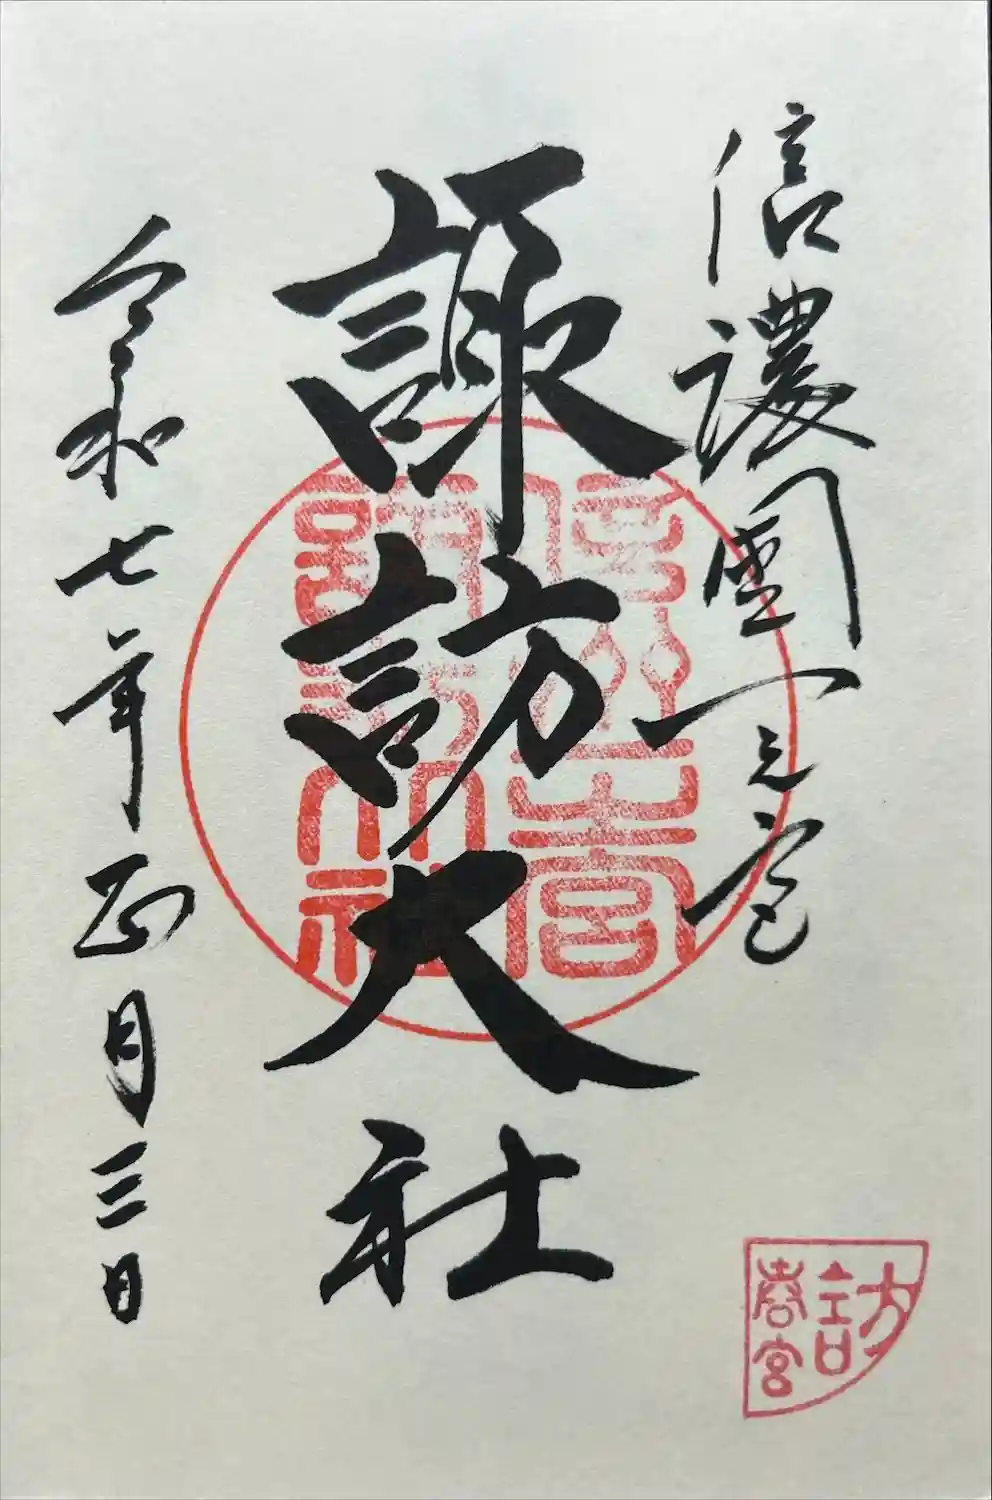 信濃國一之宮
諏訪大社
令和七年正月三日
信州一之宮
諏訪大社
訪
春宮